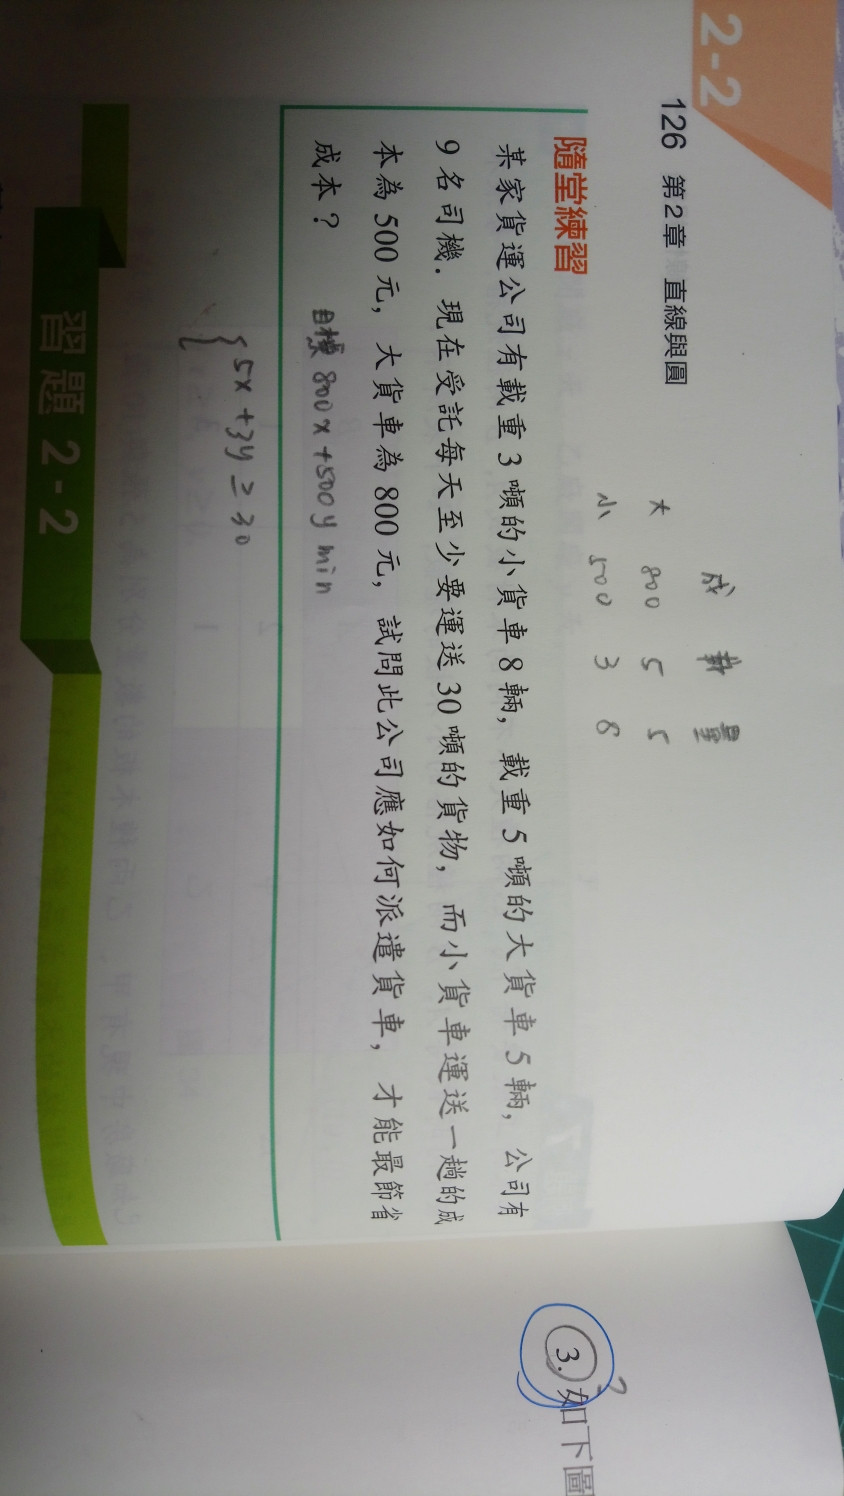 2-2
126 第2章 直線與圓
成 載 量
大 800 5 5
小 500 3 8
隨堂練習
某家貨運公司有載重3噸的小貨車8輛，載重5噸的大貨車5輛，公司有
9名司機．現在受託每天至少要運送30噸的貨物，而小貨車運送一趟的成
本為500元，大貨車為800元，試問此公司應如何派遣貨車，才能最節省
成本？
目標 800x+500y min
5x+3y≥30
習題 2-2
3. 如下圖